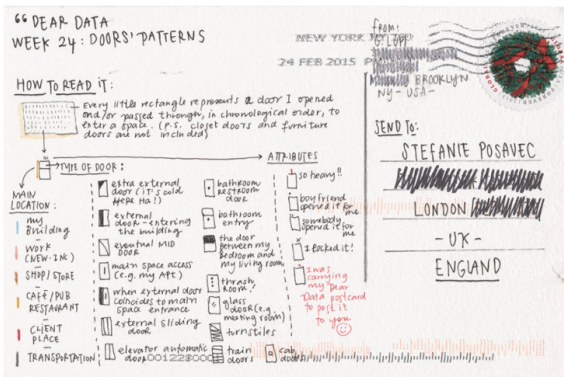 “ DEAR DATA
WEEK 24: DOORS' PATTERNS
NEW YORK NY 100
24 FEB 2015 P
FROM:
G. LUPI
BROOKLYN
NY - USA -
FOREVER
HOW TO READ IT:
Every little rectangle represents a door I opened
and/or passed through, in chronological order, to
enter a space. (P.S. closet doors and furniture
doors are not included)
TYPE OF DOOR:
ATTRIBUTES
MAIN
LOCATION:
my
Building
WORK
(NEW-INK)
SHOP/STORE
CAFE/PUB
RESTAURANT
CLIENT
PLACE
TRANSPORTATION
extra external
door (it's cold
HERE HA!)
external
door - entering
the building
eventual MID
DOOR
main space access
(e.g. my Apt.)
when external door
coincides to main
space entrance
external sliding
door
elevator automatic
door
bathroom
restroom
door
bathroom
entry
the door
between my
bedroom and
my living room
thrash
room!
glass
door (e.g.
meeting room)
turnstiles
train
doors
cab
doors
so heavy!!
boyfriend
opened it for
me
somebody
opened it for me
I locked it!
I was
carrying
my Dear
Data postcard
to post it
to you
SEND TO:
STEFANIE POSAVEC
LONDON
- UK -
ENGLAND